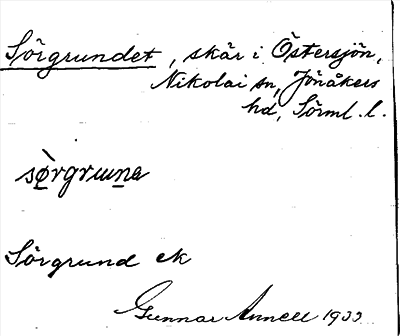 Sörgrundet, skär i Östersjön,
Nikolai sn, Jönåkers
hd, Sörml. l.
Sörgrund ek
Gunnar Annell 1933